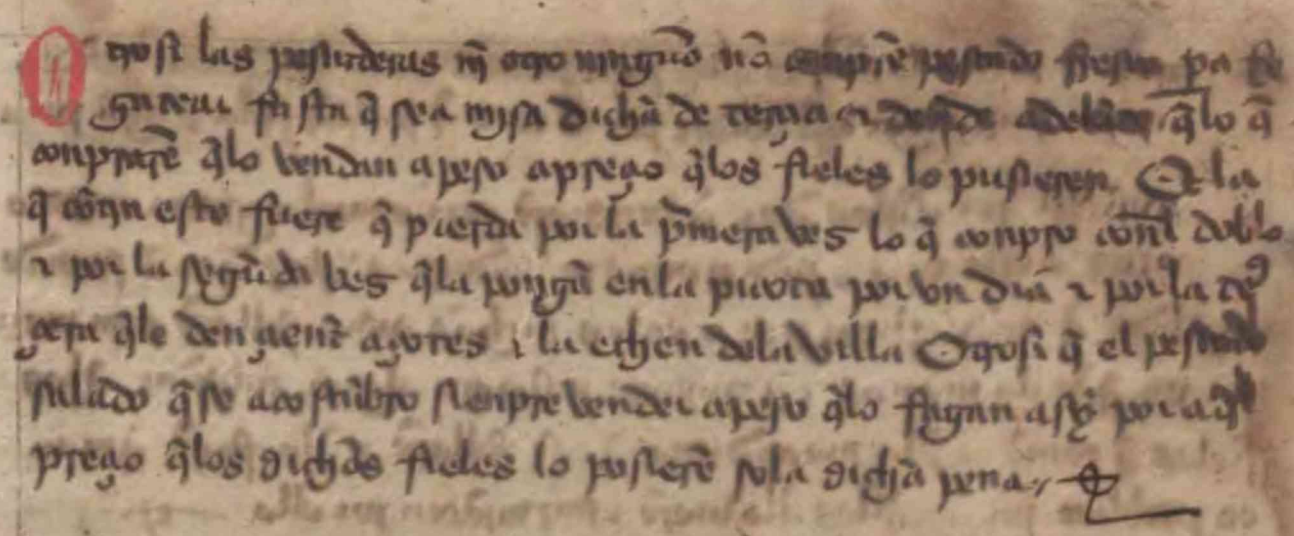 Otrosi las pescaderas nĩ otro ningũo nõ conprẽ pescado fresco pa rre
gateria fasta q̃ sea misa dicha de terçia ⁊ dende adelãte q̃lo q̃
conprarẽ q̃lo vendan apeso apreçio q̃los fieles lo pusieren E la
q̃ cõtra esto fuere q̃ pierda por la pᵢmera ves lo q̃ conpro cõel doblo
⁊ por la segũda ves q̃la pongã enla picota por vn dia ⁊ por la ter
çera q̃le den çient açotes ⁊ la echen dela villa Otrosi q̃ el pescado
salado q̃se acostũbro sienpre vender apeso q̃lo fagan asy por aq̃l
preçio q̃los dichos fieles lo posierẽ sola dicha pena